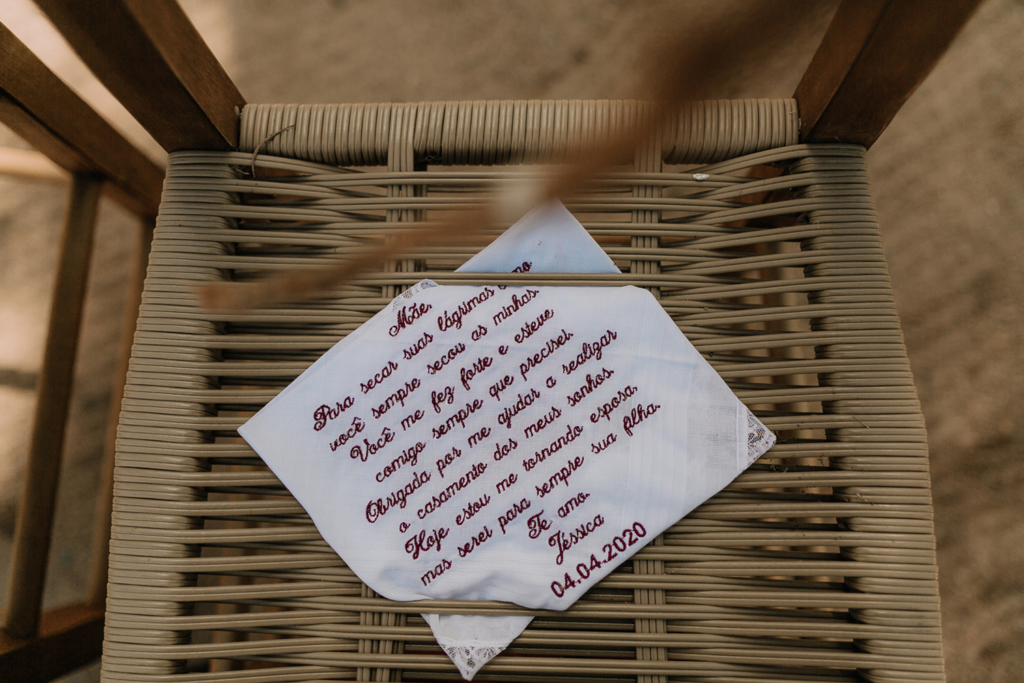 Mãe,
Para secar suas lágrimas como
você sempre secou as minhas.
Você me fez forte e esteve
comigo sempre que precisei.
Obrigada por me ajudar a realizar
o casamento dos meus sonhos.
Hoje estou me tornando esposa,
mas serei para sempre sua filha.
Te amo.
Jéssica
04.04.2020